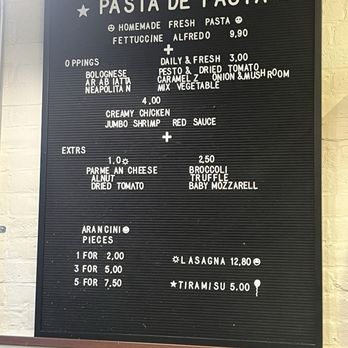 PASTA DE PASTA
HOMEMADE FRESH PASTA
FETTUCCINE ALFREDO 9,90
+
O PPINGS DAILY & FRESH 3,00
BOLOGNESE PESTO & DRIED TOMATO
ARABIATTA CARAMELZ ONION & MUSHROOM
NEAPOLITAN MIX VEGETABLE
4,00
CREAMY CHICKEN
JUMBO SHRIMP RED SAUCE
+
EXTRS
1.0 2,50
PARME AN CHEESE BROCCOLI
ALNUT TRUFFLE
DRIED TOMATO BABY MOZZARELL
ARANCINI
PIECES
1 FOR 2,00 LASAGNA 12,80
3 FOR 5,00
5 FOR 7,50 TIRAMISU 5.00